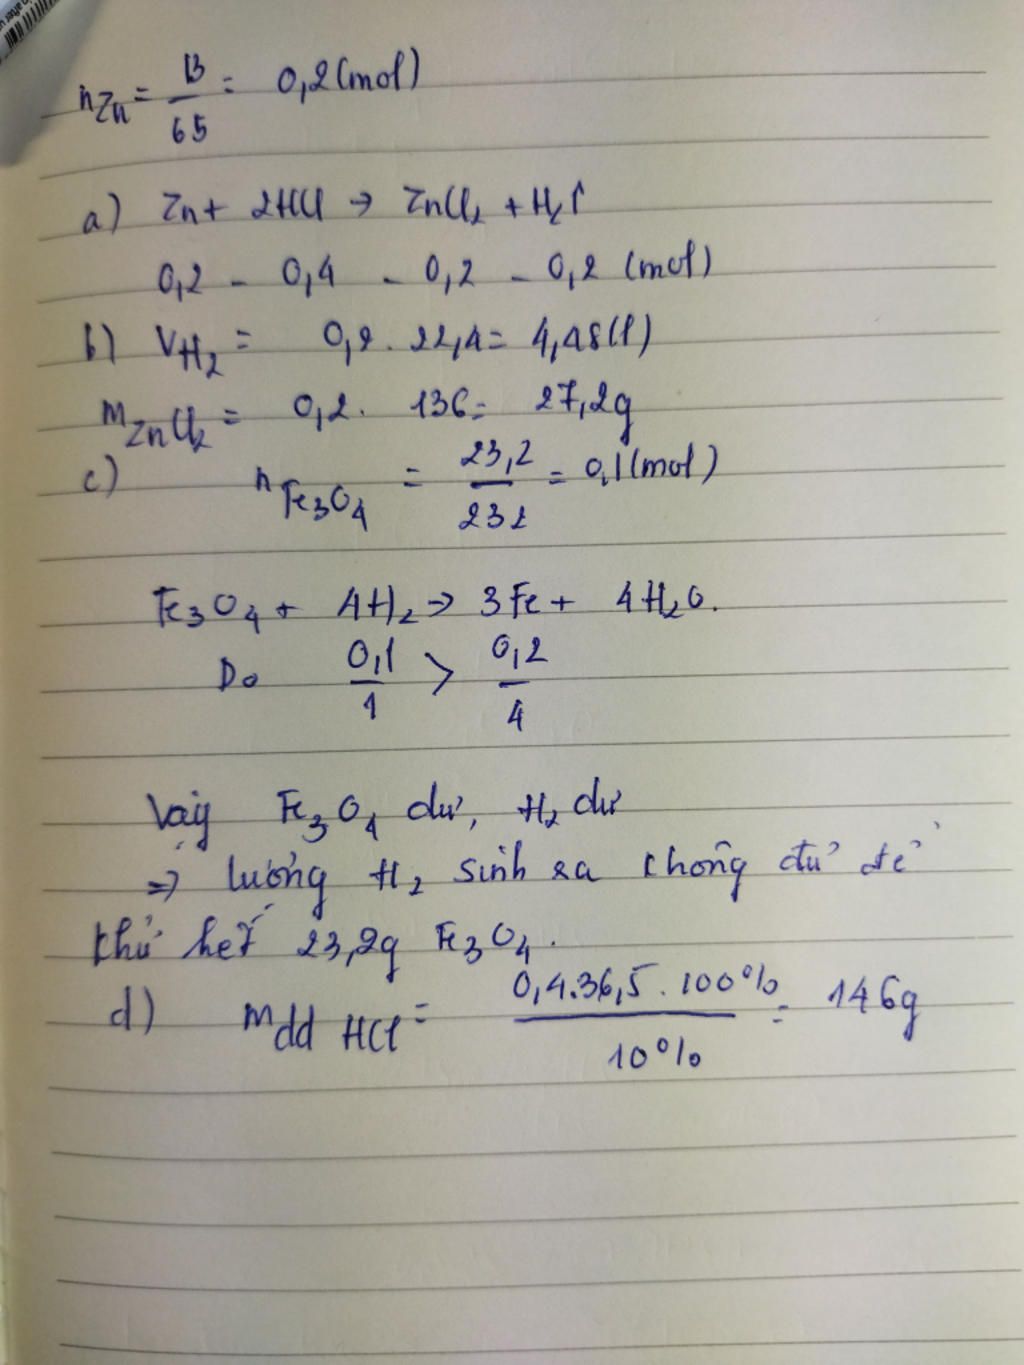 nZn = 13/65 = 0,2 (mol)
a) Zn + 2HCl → ZnCl2 + H2↑
0,2 - 0,4 - 0,2 - 0,2 (mol)
b) VH2 = 0,2. 22,4 = 4,48 (l)
mZnCl2 = 0,2. 136 = 27,2g
c) nFe3O4 = 23,2/232 = 0,1 (mol)
Fe3O4 + 4H2 → 3Fe + 4H2O.
Do 0,1/1 > 0,2/4
Vậy Fe3O4 dư, H2 dư
⇒ lượng H2 sinh ra không đủ để
khử hết 23,2g Fe3O4.
d) mdd HCl = 0,4.36,5.100%/10% = 146g